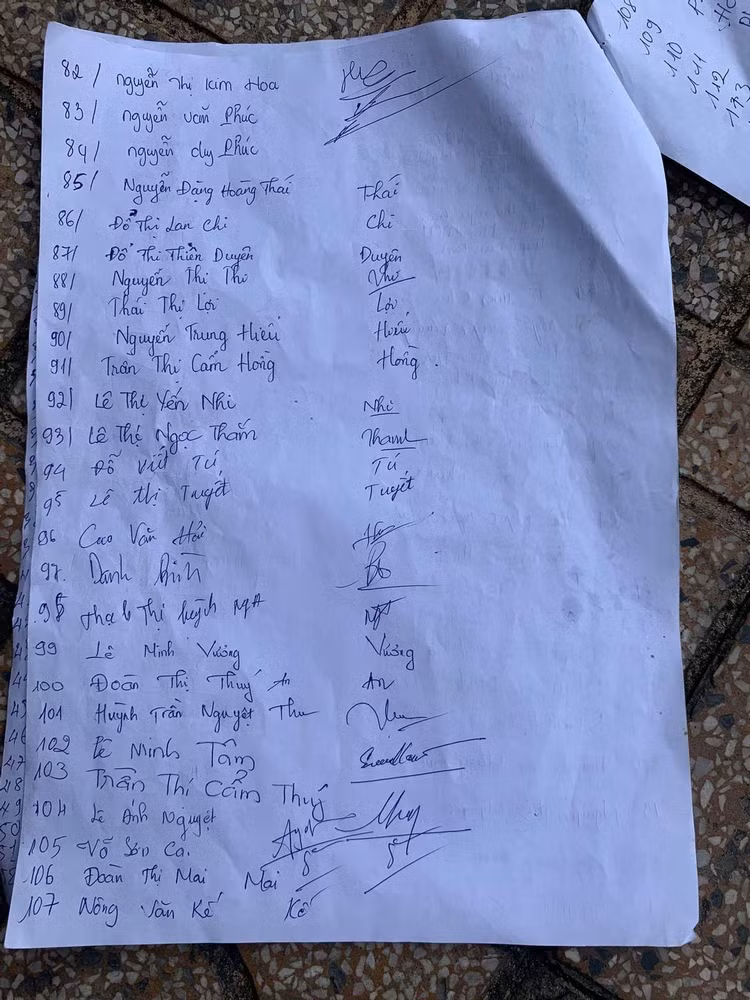 82/ Nguyễn Thị Kim Hoa
83/ Nguyễn Văn Phúc
84/ Nguyễn duy Phúc
85/ Nguyễn Đặng Hoàng Thái Thái
86/ Đỗ Thị Lan Chi Chi
87/ Đỗ Thị Thiên Duyên Duyên
88/ Nguyễn Thị Thi
89/ Thái Thị Lợi Lợi
90/ Nguyễn Trung Hiếu Hiếu
91/ Trần Thị Cẩm Hồng Hồng
92/ Lê Thị Yến Nhi Nhi
93/ Lê Thị Ngọc Thắm
94 Đỗ Viết Tú Tú
95 Lê Thị Tuyết Tuyết
96 Cao Văn Hải
97. Danh Bình
98 Thị Huỳnh
99 Lê Minh Vương Vương
100 Đoàn Thị Thuý An An
101 Huỳnh Trần Nguyệt Thu
102 Lê Minh Tâm
103 Trần Thị Cẩm Thuý
104 Lê Ánh Nguyệt
105 Võ Sơn Ca.
106 Đoàn Thị Mai Mai
107 Nông Văn Kế Kế
108
109
110
111
112
113